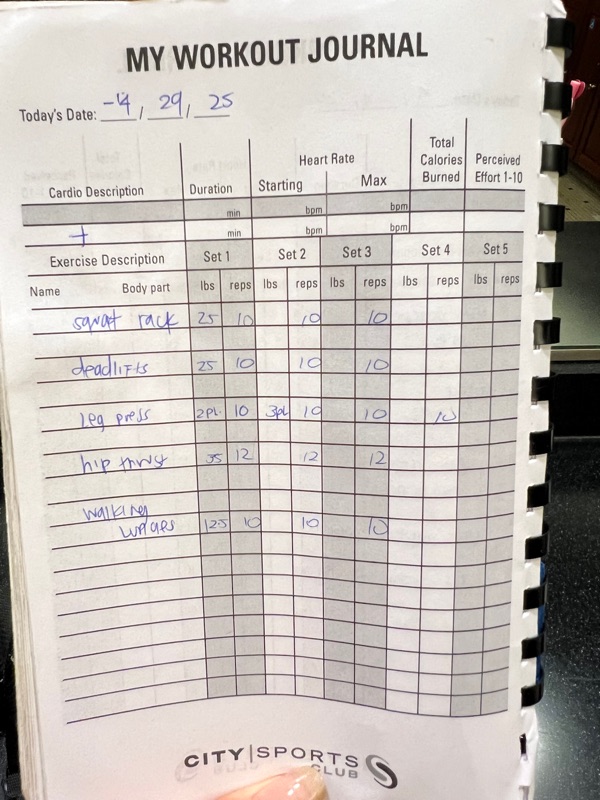 MY WORKOUT JOURNAL
Today's Date: 4 / 29 / 25
Cardio Description Duration Heart Rate Starting Max Total Calories Burned Perceived Effort 1-10
min bpm bpm
+ min bpm bpm
Exercise Description Set 1 Set 2 Set 3 Set 4 Set 5
Name Body part lbs reps lbs reps lbs reps lbs reps lbs reps
squat rack 25 10 10 10
deadlifts 25 10 10 10
Leg press 2pl. 10 3pl 10 10 10
hip thrust 35 12 12 12
walking
lunges 10 10 10
CITY|SPORTS
CLUB